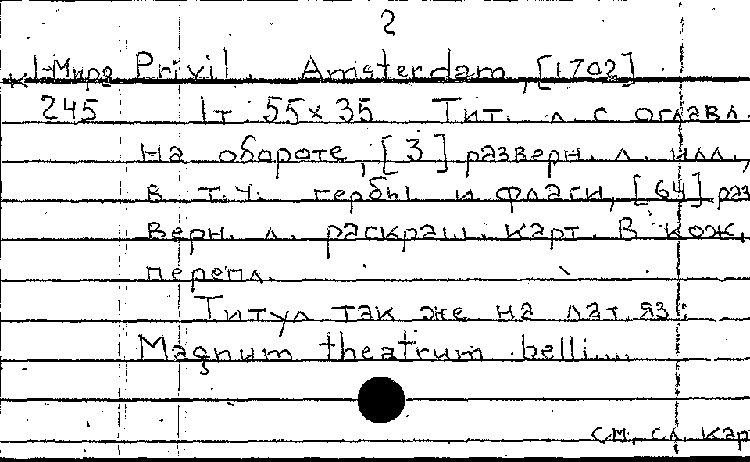 2
к1-Мира Privil. Amsterdam, [1702]
245 1т. 55x35 Тит. л. с оглавл.
на обороте, [3] разверн. л. илл.,
в т.ч. гербы и флаги, [64] раз
верн. л. раскраш. карт. В кож.
перепл.
Титул так же на лат. яз.:
Magnum theatrum belli....
см. сл. кар